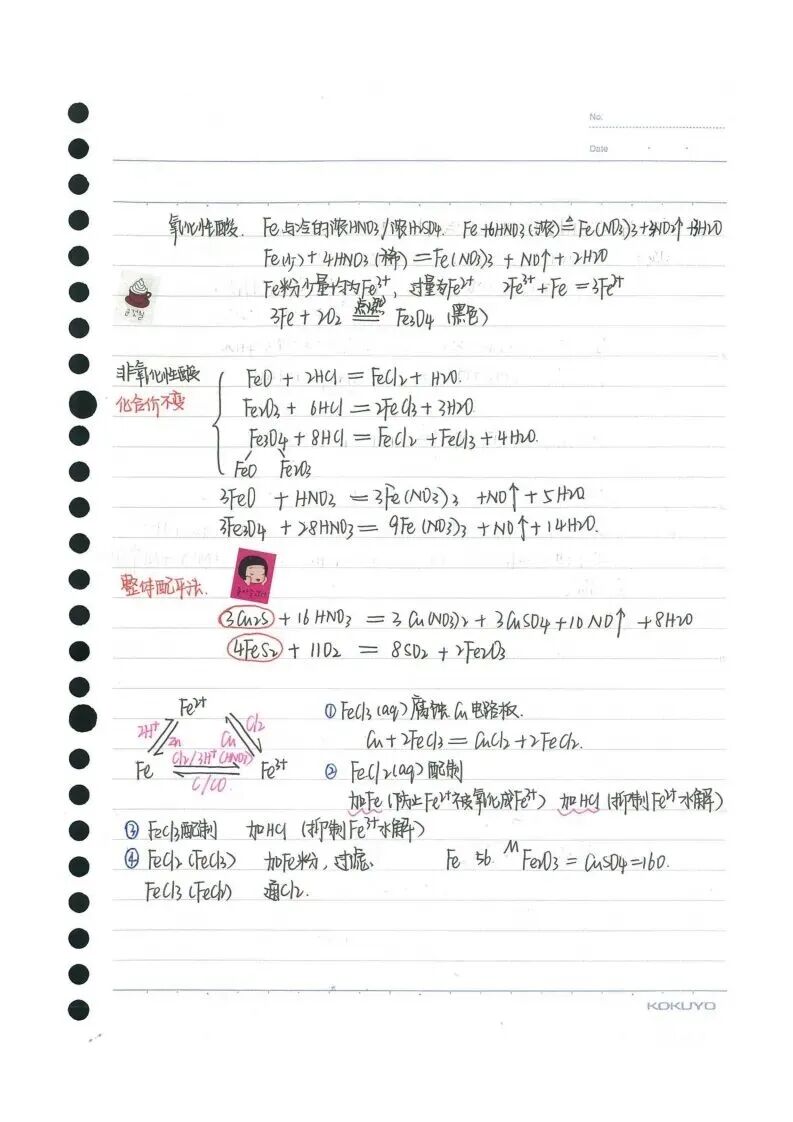 No.
Date
氧化性酸. Fe与冷的浓HNO3/浓H2SO4. Fe+6HNO3(浓)≜Fe(NO3)3+3NO2↑+3H2O
Fe(少)+4HNO3(稀)=Fe(NO3)3+NO↑+2H2O
Fe粉少量均为Fe3+, 过量为Fe2+ 2Fe3++Fe=3Fe2+
3Fe+2O2 点燃 ═ Fe3O4 (黑色)
非氧化性酸 FeO+2HCl=FeCl2+H2O.
化合价不变 Fe2O3+6HCl=2FeCl3+3H2O
Fe3O4+8HCl=FeCl2+FeCl3+4H2O.
FeO Fe2O3
3FeO+HNO3=3Fe(NO3)3+NO↑+5H2O
3Fe3O4+28HNO3=9Fe(NO3)3+NO↑+14H2O.
整体配平法.
3Cu2S+16HNO3=3Cu(NO3)2+3CuSO4+10NO↑+8H2O
4FeS2+11O2=8SO2+2Fe2O3
Fe2+
2H+ Zn Cu Cl2
Fe Cl2/3H+(HNO3) Fe3+
C/CO.
① FeCl3(aq)腐蚀Cu电路板.
Cu+2FeCl3=CuCl2+2FeCl2.
② FeCl2(aq)配制
加Fe(防止Fe2+不被氧化成Fe3+) 加HCl(抑制Fe2+水解)
③ FeCl3配制 加HCl(抑制Fe3+水解)
④ FeCl2(FeCl3) 加Fe粉,过滤. Fe 56 M Fe2O3=CuSO4=160.
FeCl3(FeCl2) 通Cl2.
KOKUYO